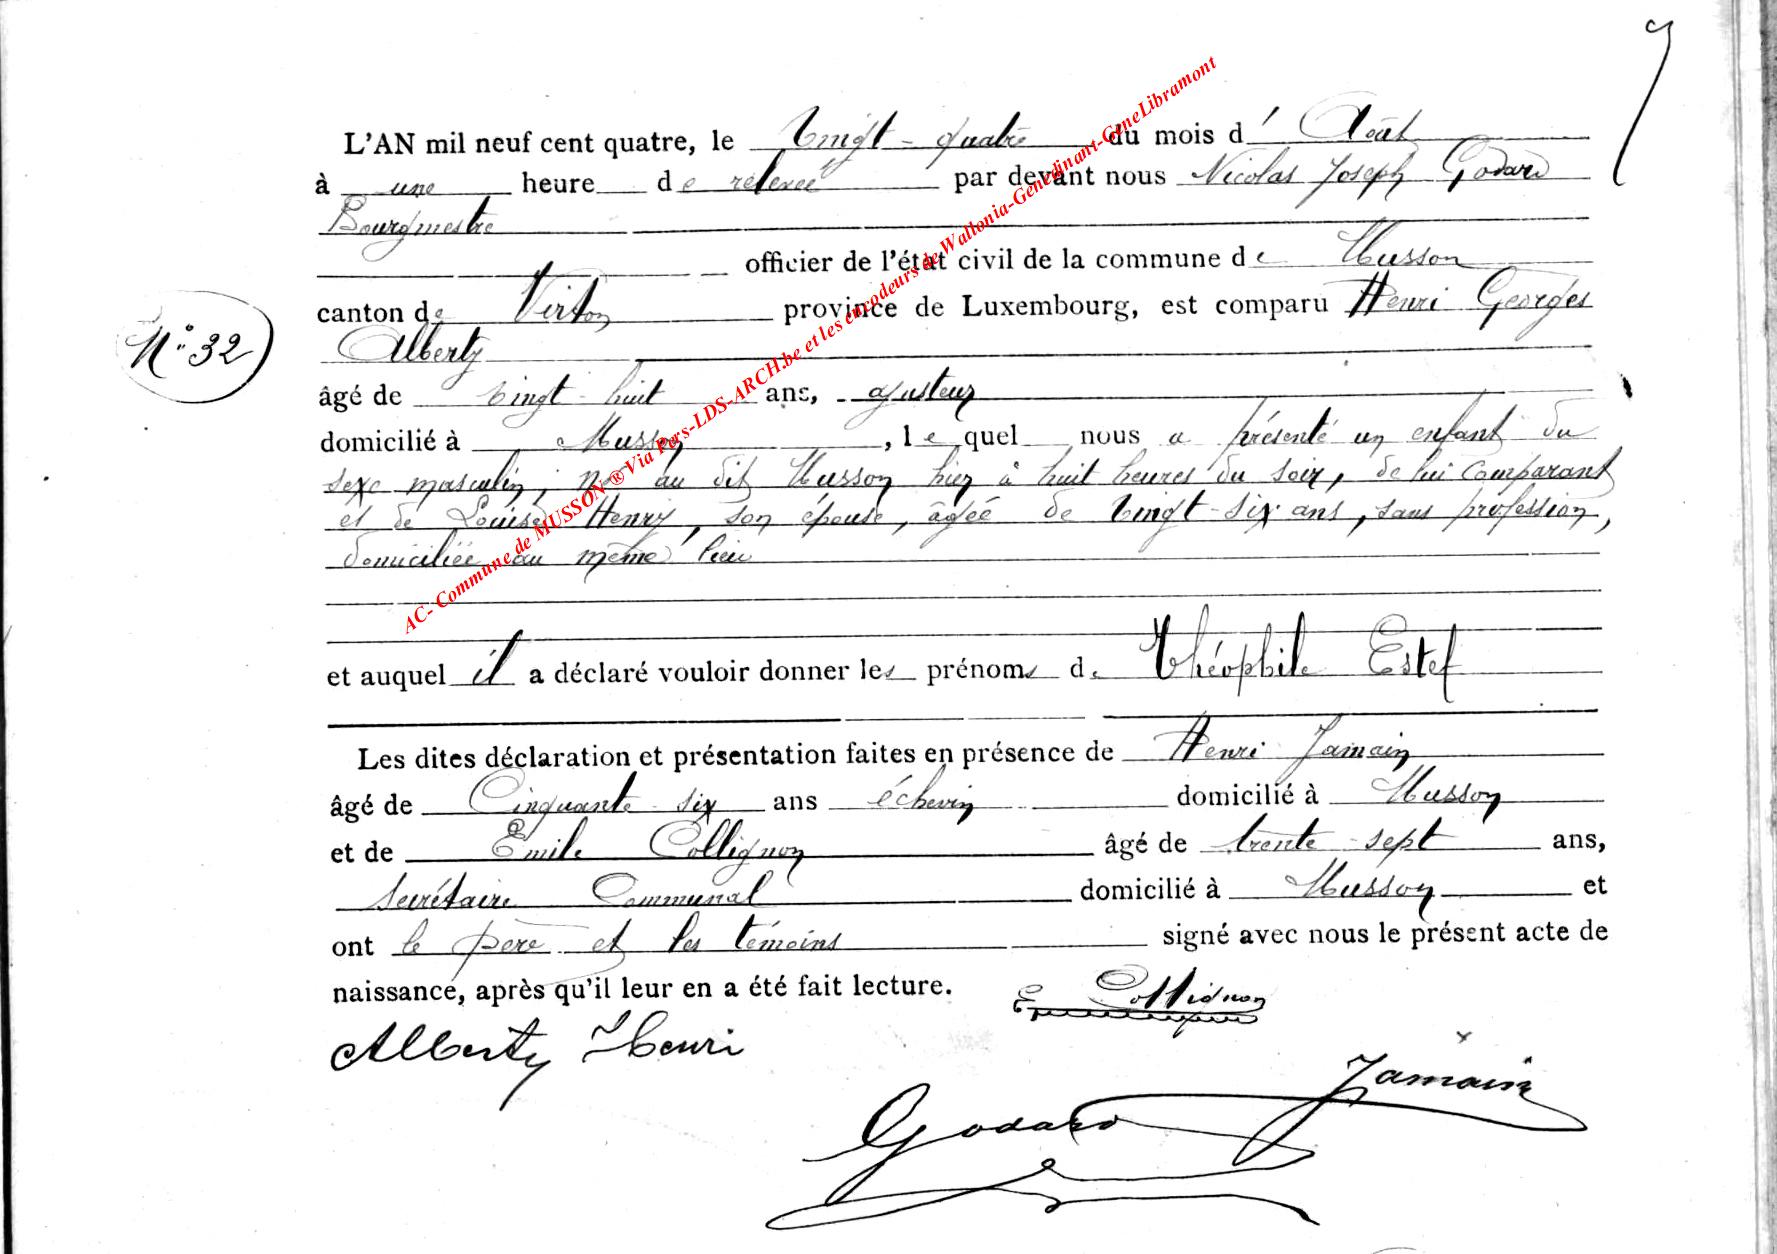 L'AN mil neuf cent quatre, le Vingt-quatre du mois d' Août
à une heure de relevée par devant nous Nicolas Joseph Godard
Bourgmestre
officier de l'état civil de la commune de Musson
canton de Virton province de Luxembourg, est comparu Henri Georges
N° 32
Alberty
âgé de vingt-huit ans, ajusteur
domicilié à Musson, lequel nous a présenté un enfant du
sexe masculin, né au dit Musson hier à huit heures du soir, de lui comparant
et de Louise Henry, son épouse, âgée de vingt-six ans, sans profession,
domiciliée au même lieu
et auquel il a déclaré vouloir donner les prénoms de Théophile Estef
Les dites déclaration et présentation faites en présence de Henri Jamain
âgé de Cinquante-six ans échevin domicilié à Musson
et de Emile Collignon âgé de trente-sept ans,
Secrétaire Communal domicilié à Musson et
ont le père et les témoins signé avec nous le présent acte de
naissance, après qu'il leur en a été fait lecture.
E Collignon
Alberty Henri
Jamain
Godard
AC- Commune de MUSSON ® Via Pers-LDS-ARCH.be et les encodeurs de Wallonia-Genedinant-GeneLibramont